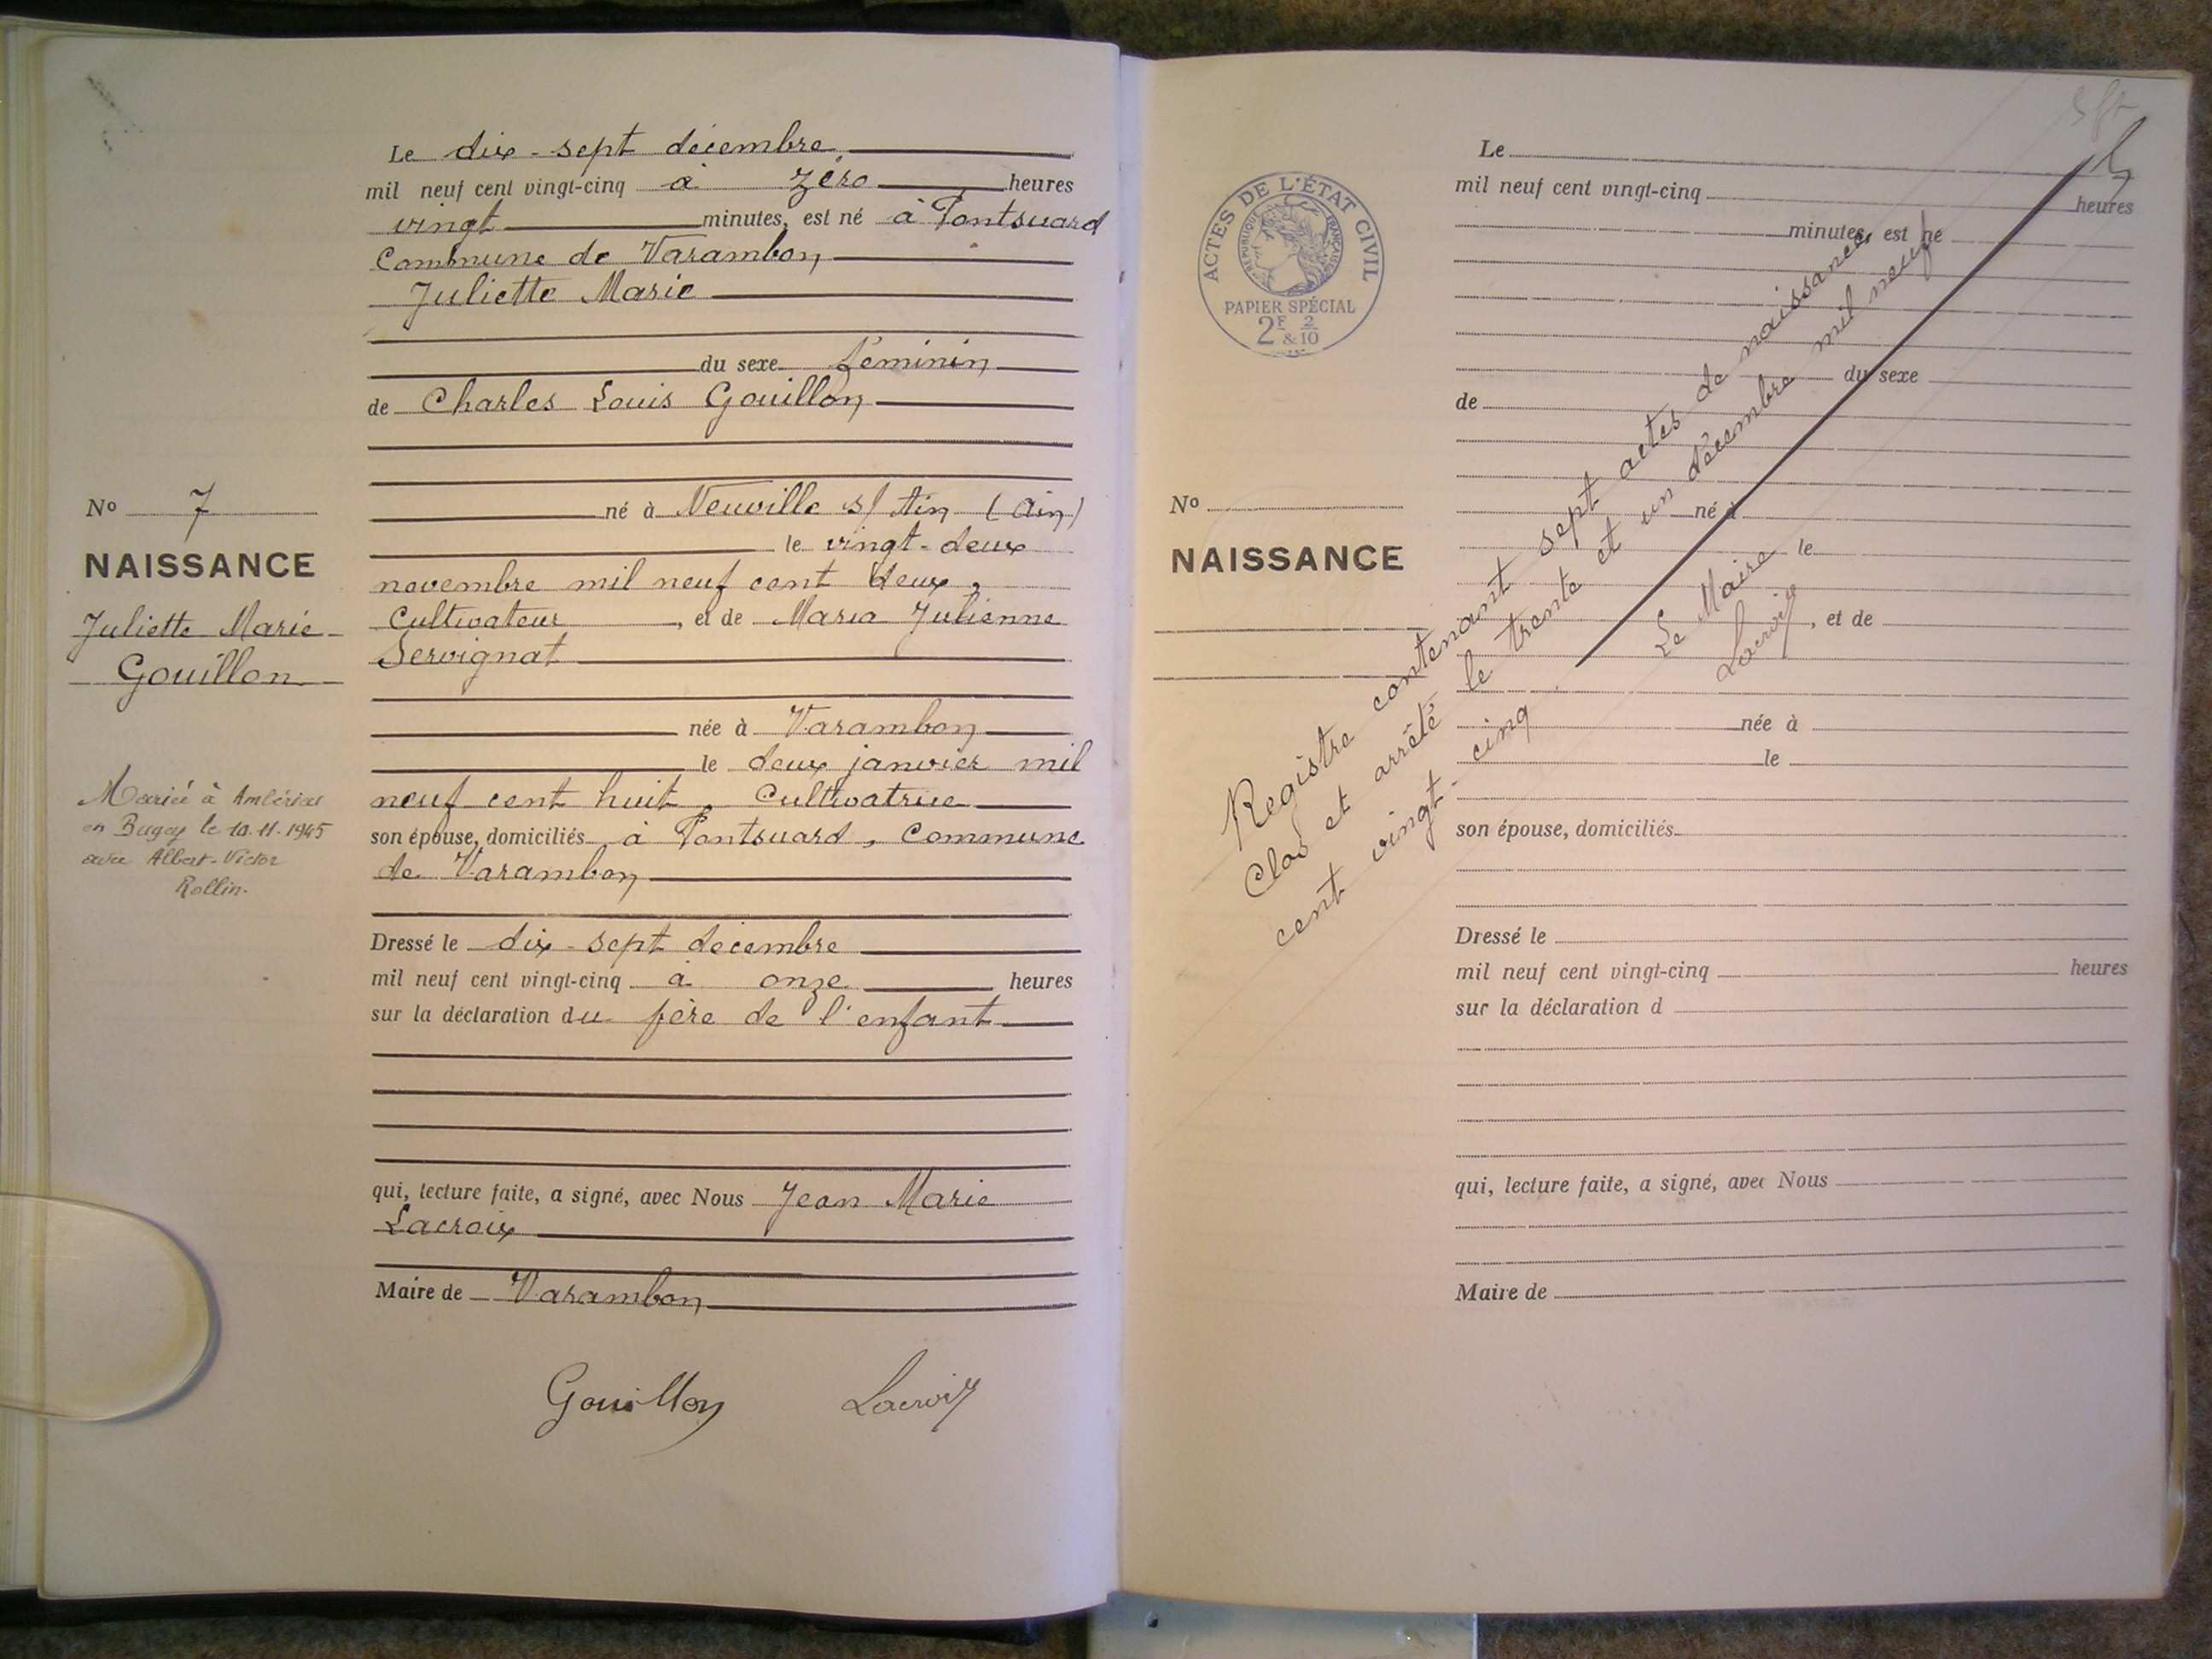 Le dix-sept décembre
mil neuf cent vingt-cinq à zéro heures
vingt minutes, est né à Pontsuard
Commune de Varambon
Juliette Marie
du sexe féminin
de Charles Louis Gouillon
né à Neuville s/ Ain (Ain)
le vingt-deux
novembre mil neuf cent deux,
Cultivateur, et de Maria Julienne
Servignat
née à Varambon
le deux janvier mil
neuf cent huit, Cultivatrice
son épouse, domiciliés à Pontsuard, Commune
de Varambon
Dressé le dix-sept décembre
mil neuf cent vingt-cinq à onze heures
sur la déclaration du père de l'enfant
qui, lecture faite, a signé, avec Nous Jean Marie
Lacroix
Maire de Varambon
Gouillon Lacroix
No 7
NAISSANCE
Juliette Marie
Gouillon
Mariée à Ambérieu
en Bugey le 10.11.1945
avec Albert-Victor
Rollin.
ACTES DE L'ÉTAT CIVIL
RÉPUBLIQUE FRANÇAISE
PAPIER SPÉCIAL
2F & 2/10
No
NAISSANCE
Le
mil neuf cent vingt-cinq heures
minutes, est né
du sexe
de
né à
le
, et de
née à
le
son épouse, domiciliés
Dressé le
mil neuf cent vingt-cinq heures
sur la déclaration d
qui, lecture faite, a signé, avec Nous
Maire de
Registre contenant sept actes de naissances
Clos et arrêté le trente et un décembre mil neuf
cent vingt-cinq.
Le Maire
Lacroix